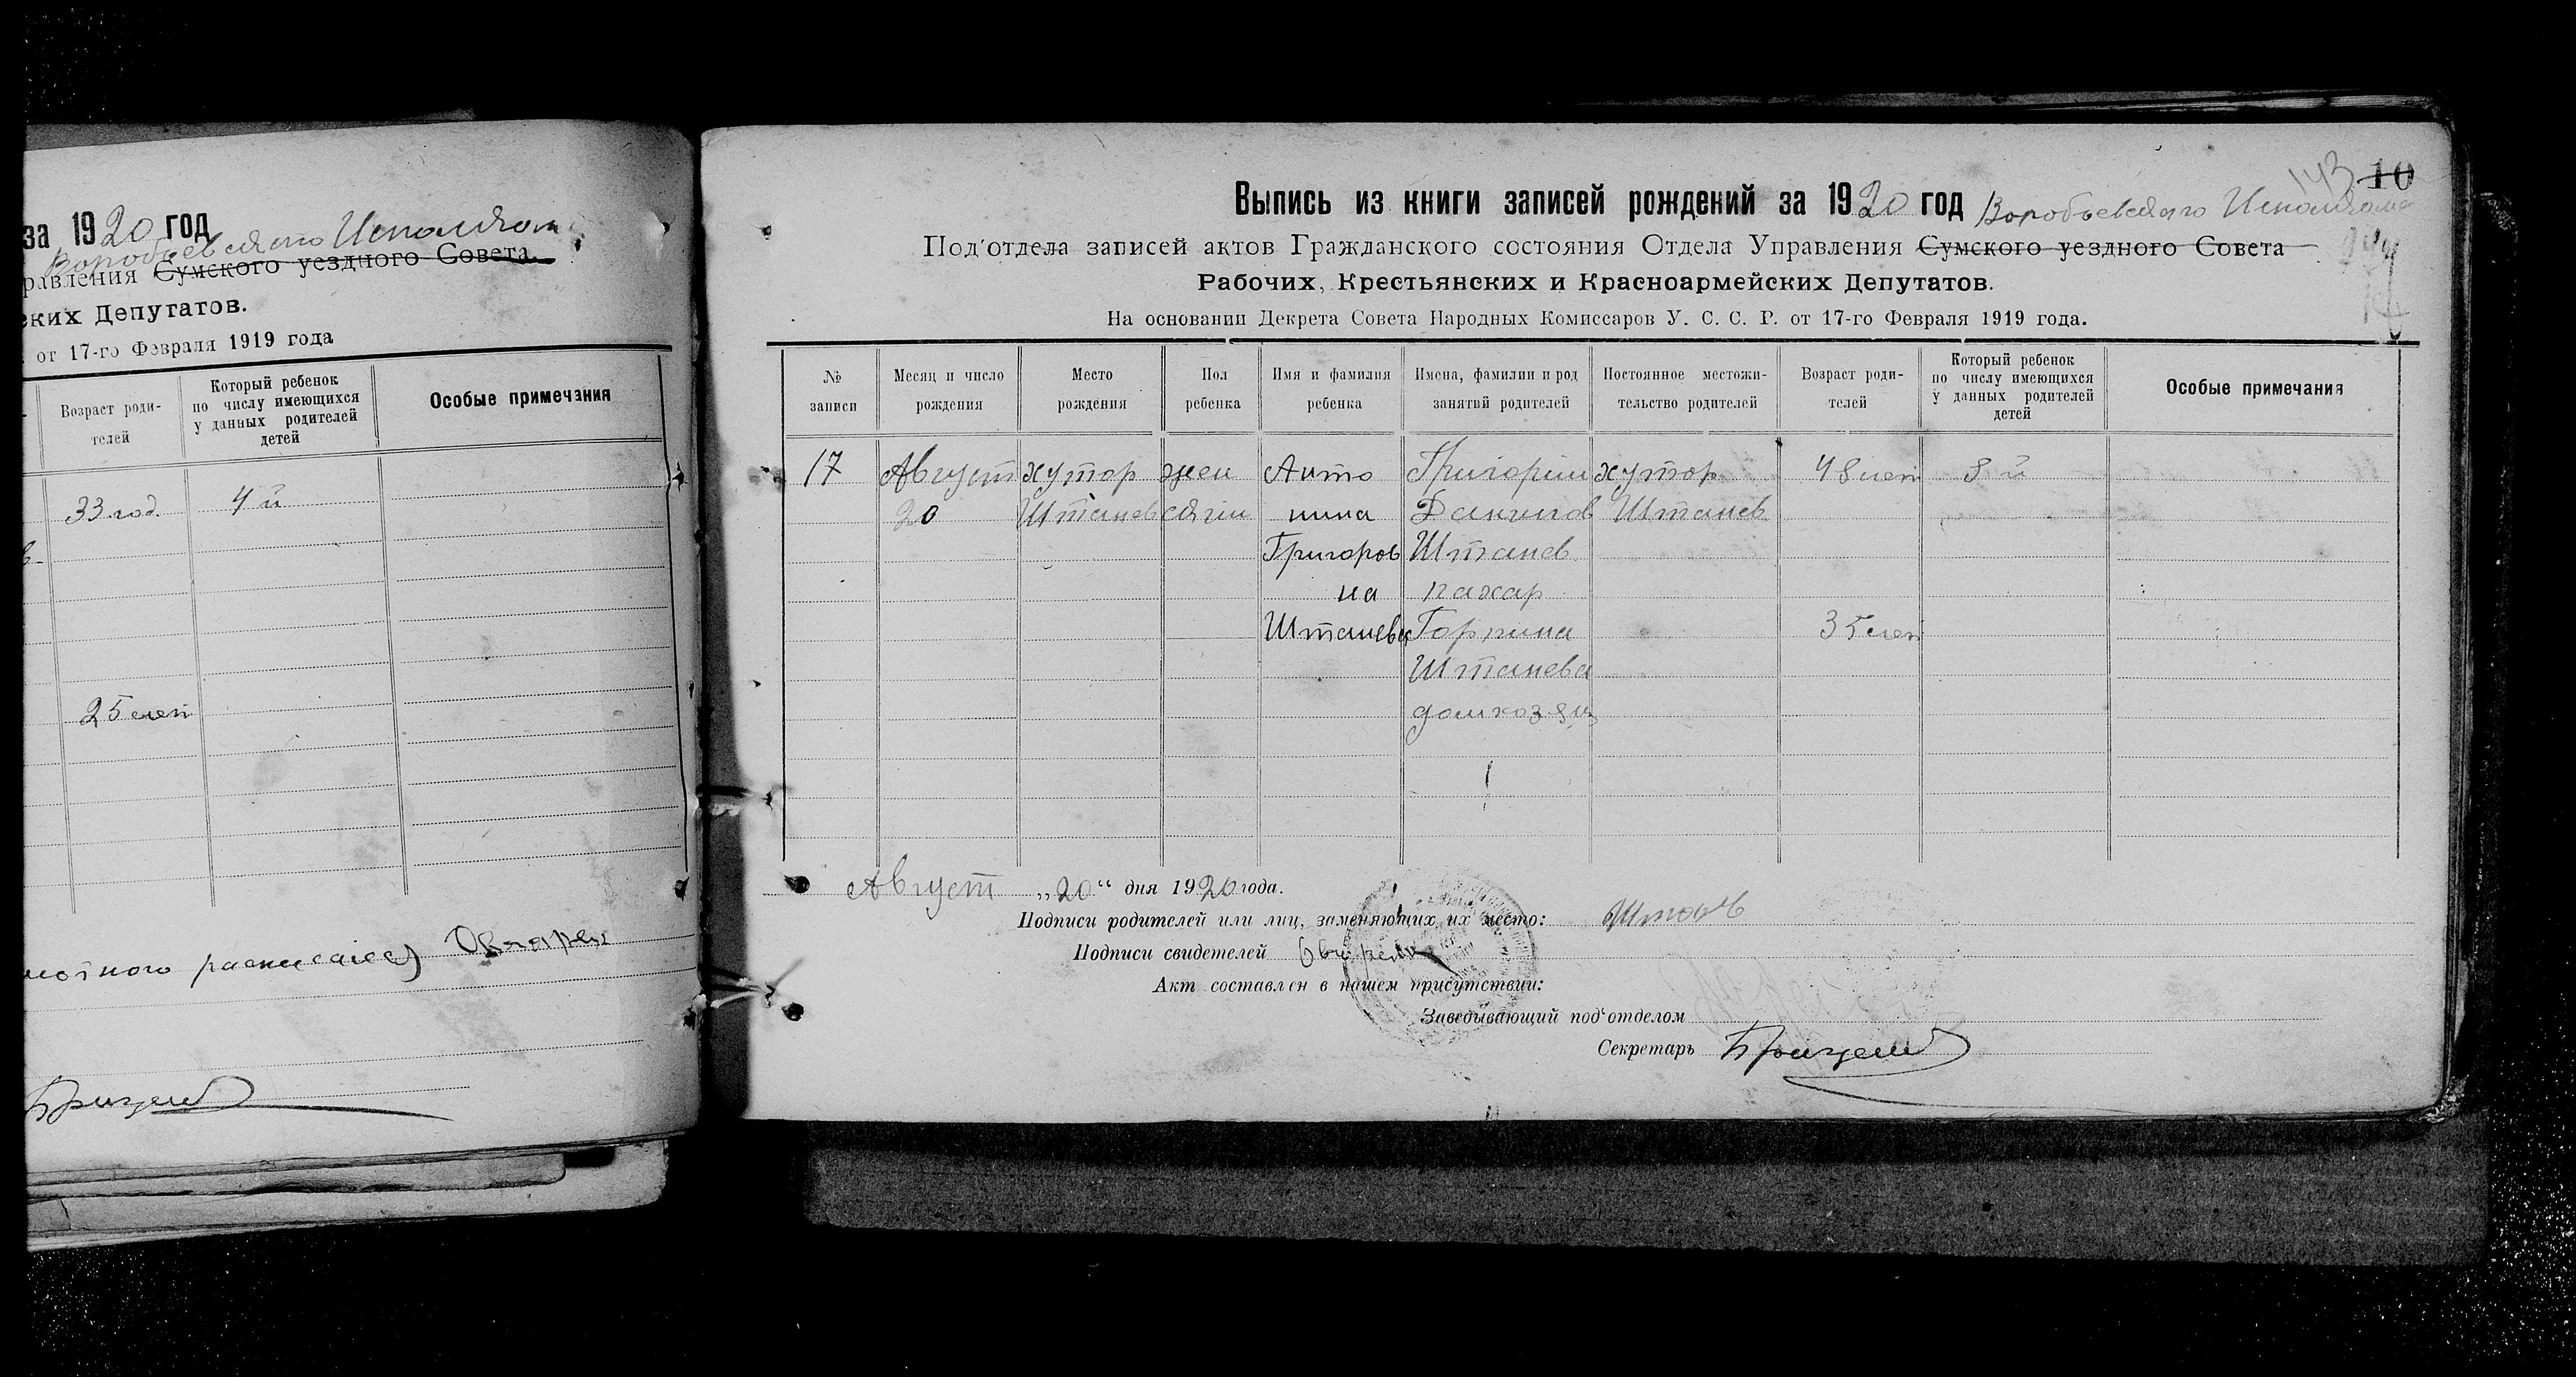 за 1920 год
Воробьевского Исполком
равления Сумского уездного Совета.
ских Депутатов.
от 17-го Февраля 1919 года
Возраст роди-
телей
Который ребенок
по числу имеющихся
у данных родителей
детей
Особые примечания
33 год. 4 й
25 лет
10
143
Выпись из книги записей рождений за 1920 год Воробьевского Исполкома
Под'отдела записей актов Гражданского состояния Отдела Управления Сумского уездного Совета
Рабочих, Крестьянских и Красноармейских Депутатов.
На основании Декрета Совета Народных Комиссаров У. С. С. Р. от 17-го Февраля 1919 года.
№
записи
Месяц и число
рождения
Место
рождения
Пол
ребенка
Имя и фамилия
ребенка
Имена, фамилии и род
занятий родителей
Постоянное местожи-
тельство родителей
Возраст роди-
телей
Который ребенок
по числу имеющихся
у данных родителей
детей
Особые примечания
17 Август хутор жен Анто Григорий хутор 48 лет 8 й
20 Штанев ский нина Данилов Штанев
Григоров Штанев
на пахар
Штанева Горпина 35 лет
Штанева
домхозяц
Август „20“ дня 1920 года.
Подписи родителей или лиц, заменяющих их место:
Подписи свидетелей
Акт составлен в нашем присутствии:
Заведывающий под'отделом
Секретарь